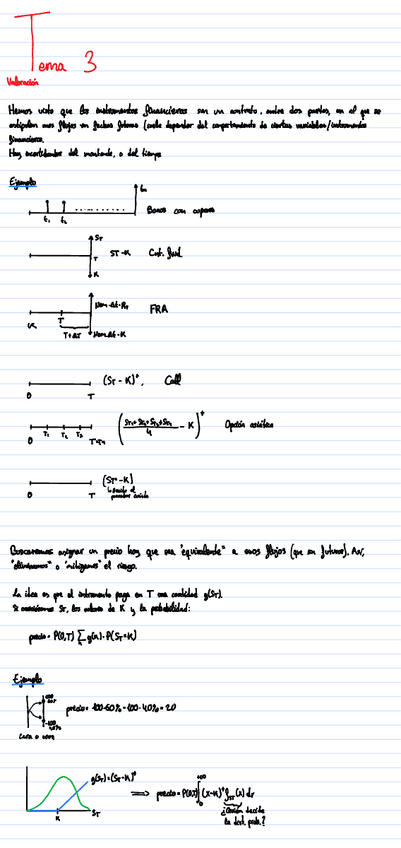 Tema 3
Valoración
Hemos visto que los instrumentos financieros son un contrato, entre dos partes, en el que se
anticipan unos flujos en fechas futuras (suele depender del comportamiento de ciertas variables/instrumentos
financieros.
Hay incertidumbre del montante, o del tiempo
Ejemplo
t₁ t₂ ......... tₙ Bonos con cupones
S_T
T S_T-K Cont. fwd
K
Nom·Δt·R_T
T FRA
T+ΔT Nom·Δt·K
0 T (S_T - K)⁺, Call
0 T₁ T₂ T₃ T=T₄ ( (S_T₁+S_T₂+S_T₃+S_T₄)/4 - K )⁺ Opción asiática
0 T (S_T - K)
Buscaremos asignar un precio hoy que sea "equivalente" a esos flujos (que son futuros). Así,
"eliminamos" o "mitigamos" el riesgo.
La idea es que el instrumento paga en T una cantidad g(S_T).
Si S_T, los valores de K y la probabilidad:
precio = P(0,T) ∑ g(K)·P(S_T=K)
Ejemplo
100
60%
-100
40%
precio = 100·60% - 100·40% = 20
Cara o cruz
g(S_T)=(S_T-K)⁺
K S_T
⟹ precio = P(0,T) ∫₀^{+∞} (x-K)⁺ f_{S_T}(x) dx
¿Quién decide
la dist. prob.?